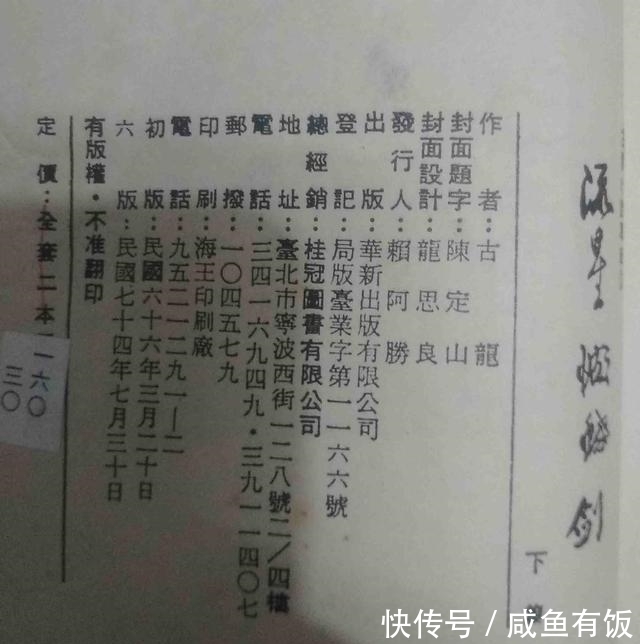 流星蝴蝶劍
下
作者：古龍
封面題字：陳定山
封面設計：龍思良
發行人：賴阿勝
出版：華新出版有限公司
登記：局版臺業字第一一六六號
總經銷：桂冠圖書有限公司
地址：臺北市寧波西街一二八號二/四樓
電話：三四一六九四九・三九一一四〇七
郵撥：一〇四五七九
印刷：海王印刷廠
電話：九五二一二九一—二
初版：民國六十六年三月二十日
六版：民國七十四年七月三十日
有版權・不准翻印
定價：全套二本
一六〇
三〇
快传号 / 咸鱼有饭